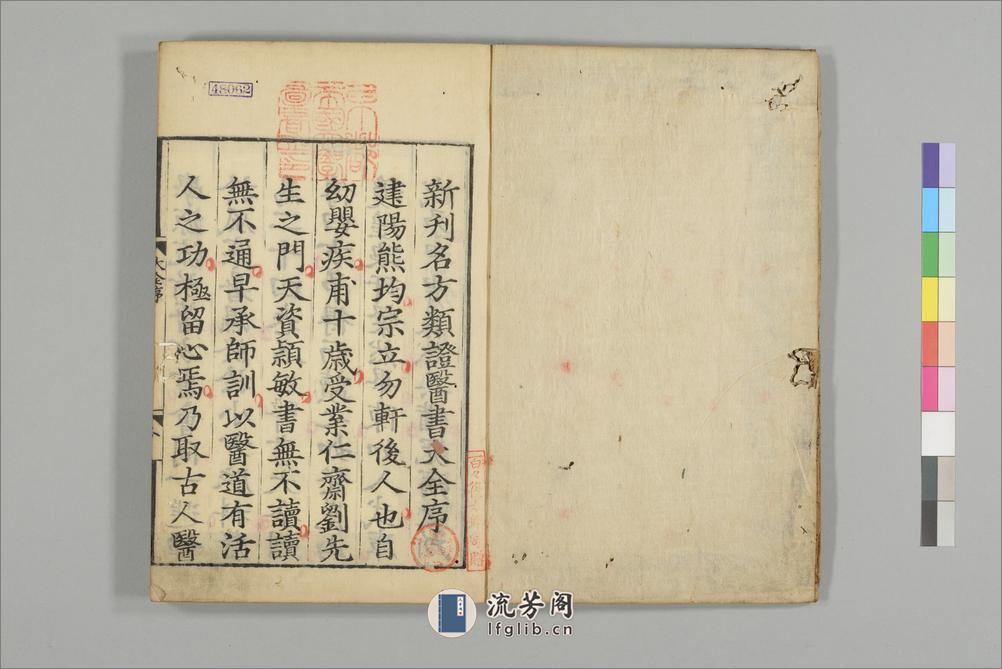 新刊名方類證醫書大全序
建陽熊均宗立勿軒後人也自
幼嬰疾甫十歲受業仁齋劉先
生之門天資穎敏書無不讀讀
無不通早承師訓以醫道有活
人之功極留心焉乃取古人醫
大全序
48062
流芳阁
lfglib.cn